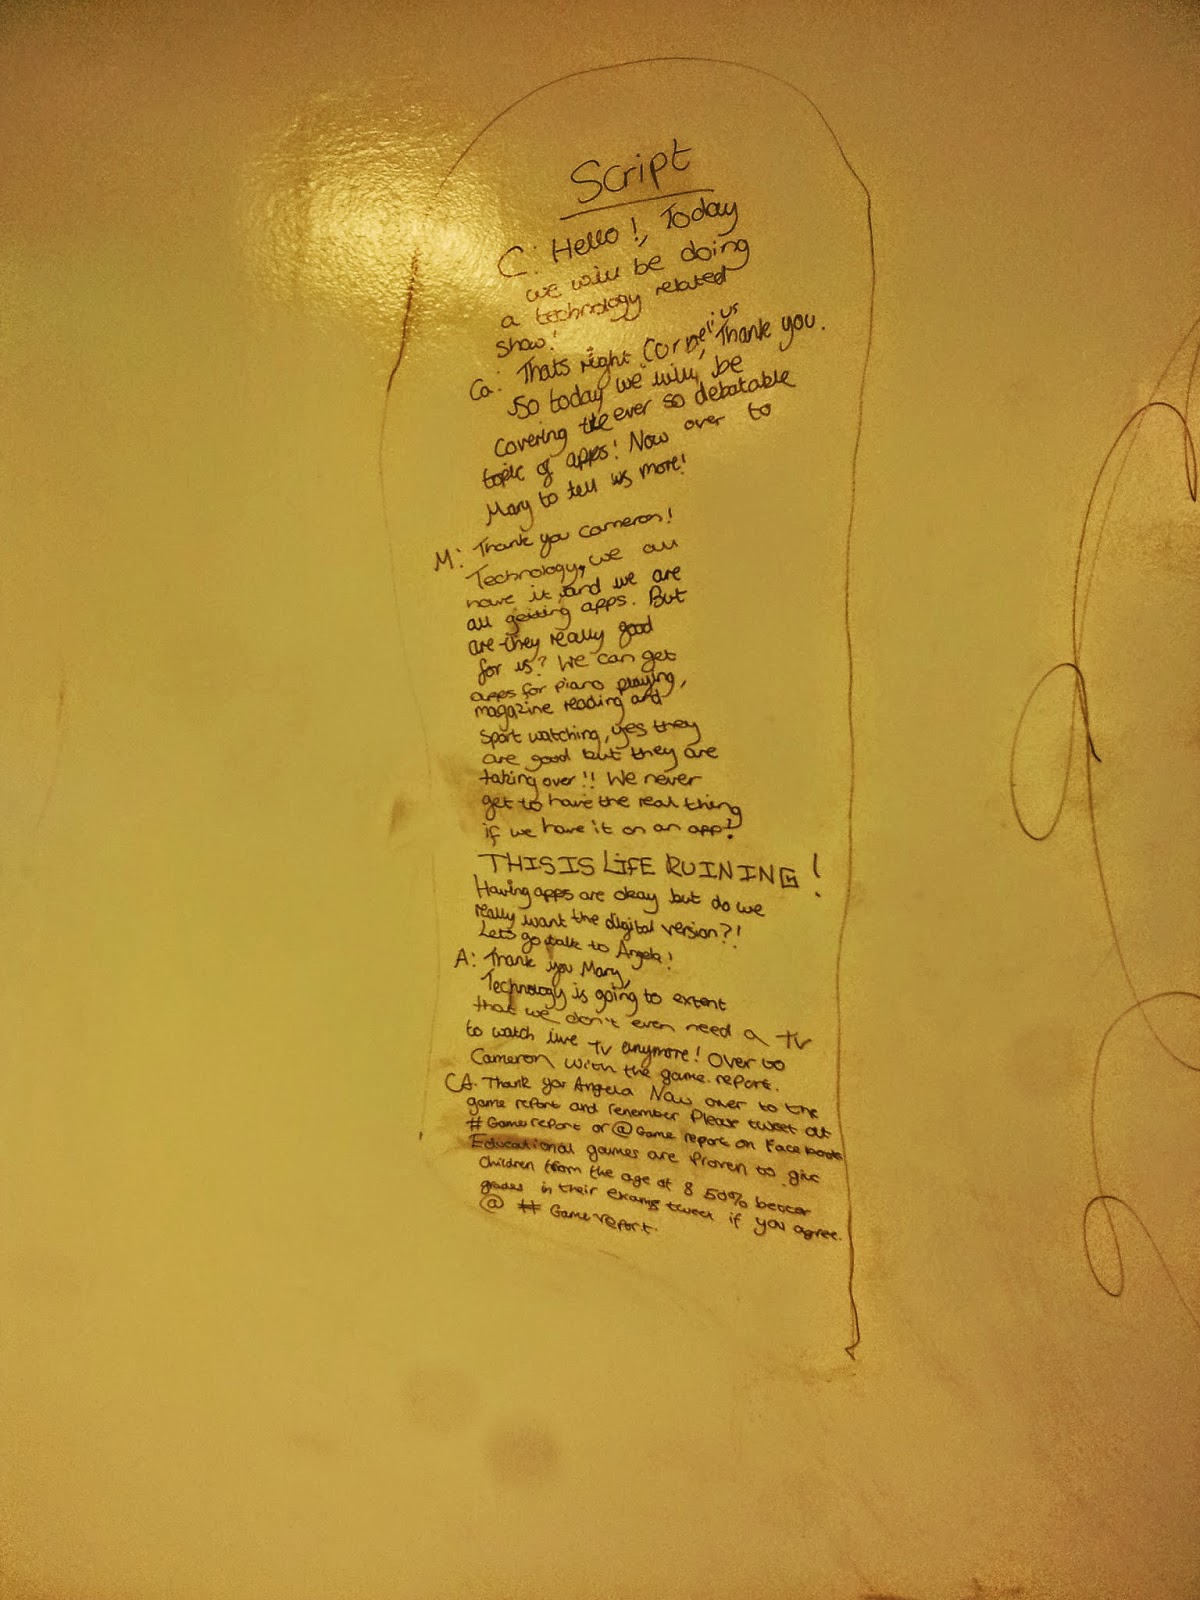 Script
C: Hello!, Today
we will be doing
a technology related
show!
Ca: Thats right Cornelius, Thank you.
So today we will be
covering the ever so debatable
topic of apps! Now over to
Mary to tell us more!
M: Thank you Cameron!
Technology, we all
have it and we are
all getting apps. But
are they really good
for us? We can get
apps for piano playing,
magazine reading and
sport watching, yes they
are good but they are
taking over!! We never
get to have the real thing
if we have it on an app!
THIS IS LIFE RUINING!
Having apps are okay but do we
really want the digital version?!
Lets go talk to Angela!
A: Thank you Mary,
Technology is going to extent
that we don't even need a TV
to watch live TV anymore! Over to
Cameron with the game report.
CA. Thank you Angela Now over to the
game report and remember Please tweet at
# Game report or @ Game report on Facebook
Educational games are Proven to give
children from the age of 8 50% better
grades in their exams tweet if you agree.
@ # Game report.